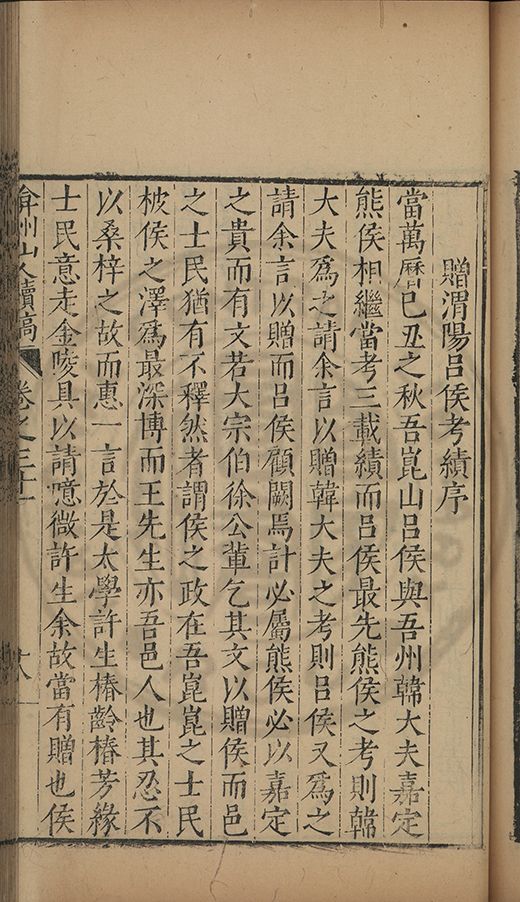 贈渭陽呂侯考績序
當萬曆己丑之秋吾崑山呂侯與吾州韓大夫嘉定
熊侯相繼當考三載績而呂侯最先熊侯之考則韓
大夫爲之請余言以贈韓大夫之考則呂侯又爲之
請余言以贈而呂侯顧闕焉計必屬熊侯必以嘉定
之貴而有文若大宗伯徐公輩乞其文以贈侯而邑
之士民猶有不釋然者謂侯之政在吾崑崑之士民
被侯之澤爲最深博而王先生亦吾邑人也其忍不
以桑梓之故而惠一言於是太學許生椿齡椿芳緣
士民意走金陵具以請噫微許生余故當有贈也侯
弇州山人續稿 卷之三十 十八